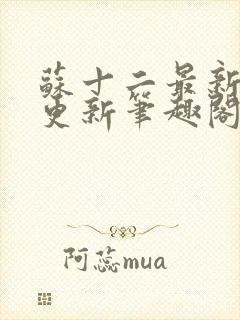 蘇十二最新
更新筆趣閣
阿蕊mua